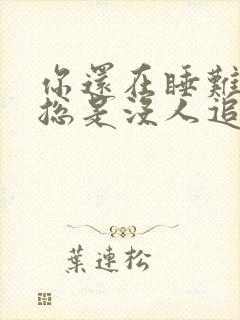 你還在睡難
總是沒人追
葉連松